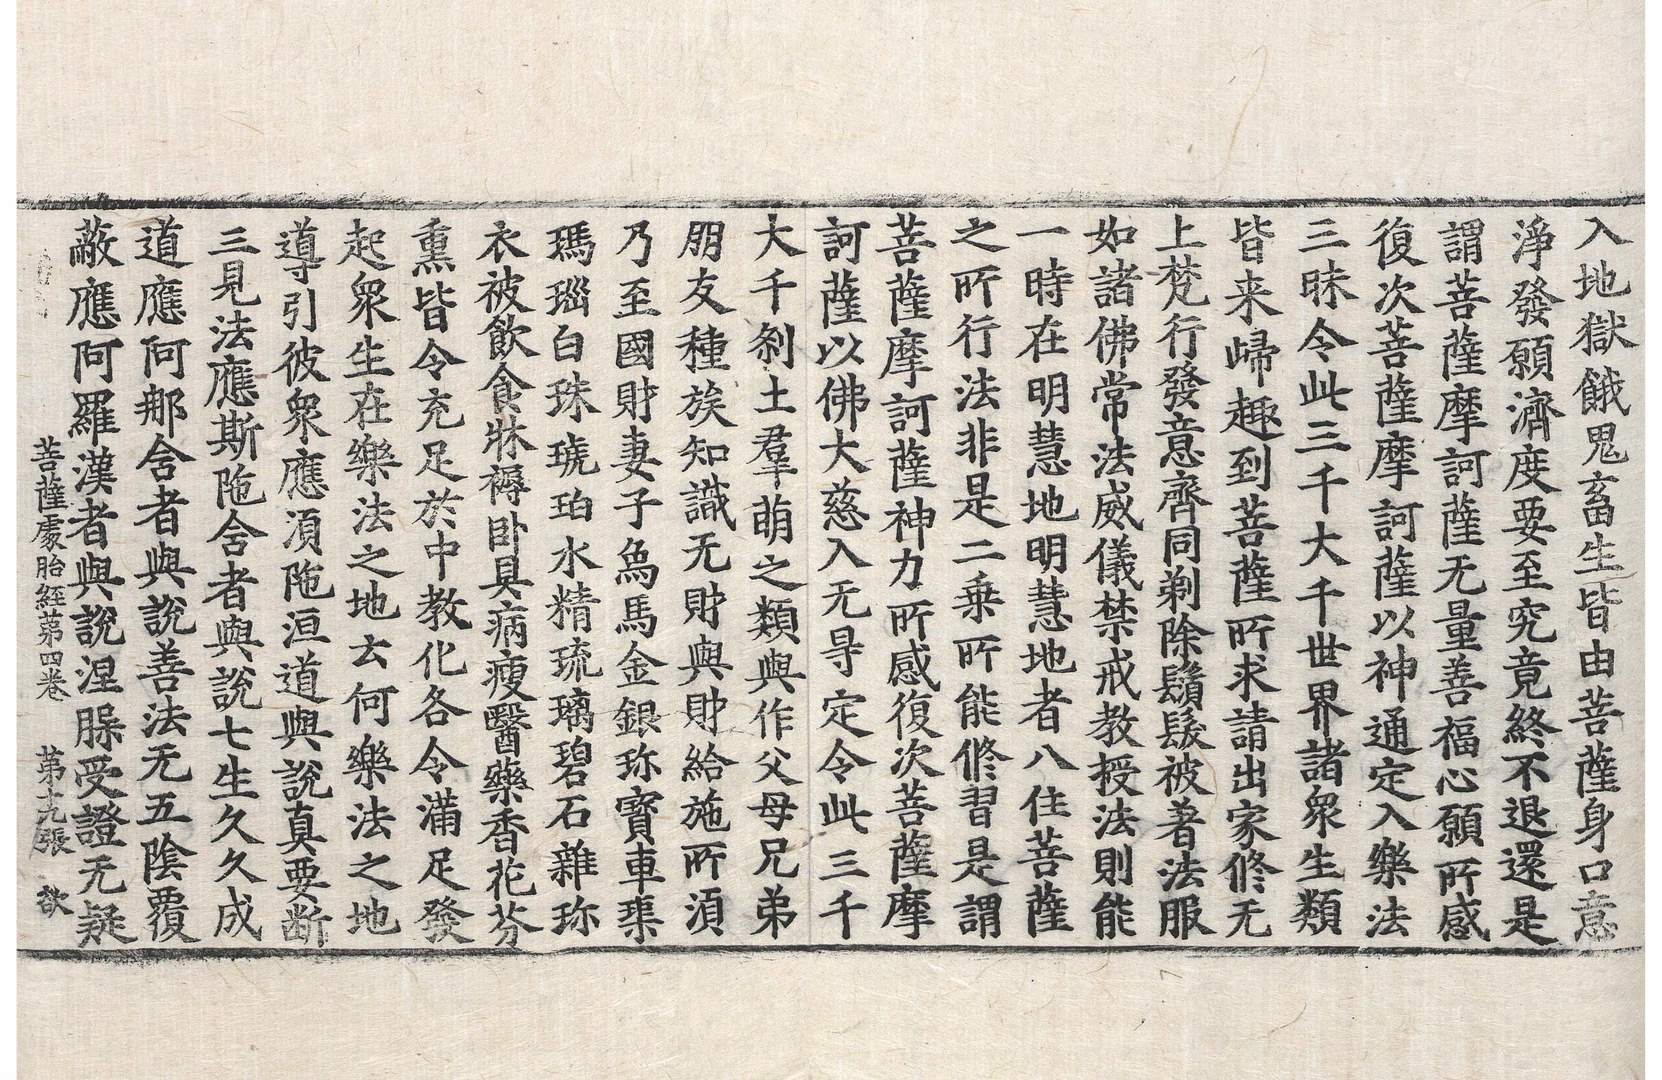 入地獄餓鬼畜生皆由菩薩身口意
淨發願濟度要至究竟終不退還是
謂菩薩摩訶薩无量善福心願所感
復次菩薩摩訶薩以神通定入樂法
三昧令此三千大千世界諸衆生類
皆来歸趣到菩薩所求請出家修无
上梵行發意齊同剃除鬚髮被著法服
如諸佛常法威儀禁戒教授法則能
一時在明慧地明慧地者八住菩薩
之所行法非是二乗所能修習是謂
菩薩摩訶薩神力所感復次菩薩摩
訶薩以佛大慈入无㝵定令此三千
大千剎土羣萌之類與作父母兄弟
朋友種族知識无財與財給施所須
乃至國財妻子烏馬金銀珎寶車𤦲
瑪瑙白珠琥珀水精琉璃碧石雜珎
衣被飲食牀褥卧具病瘦醫藥香花芬
熏皆令充足於中教化各令滿足發
起衆生在樂法之地云何樂法之地
導引彼衆應須陁洹道與說真要断
三見法應斯陁含者與說七生久久成
道應阿那含者與說善法无五陰覆
蔽應阿羅漢者與說涅槃受證无疑
菩薩處胎經苐四卷 苐十九張 欲